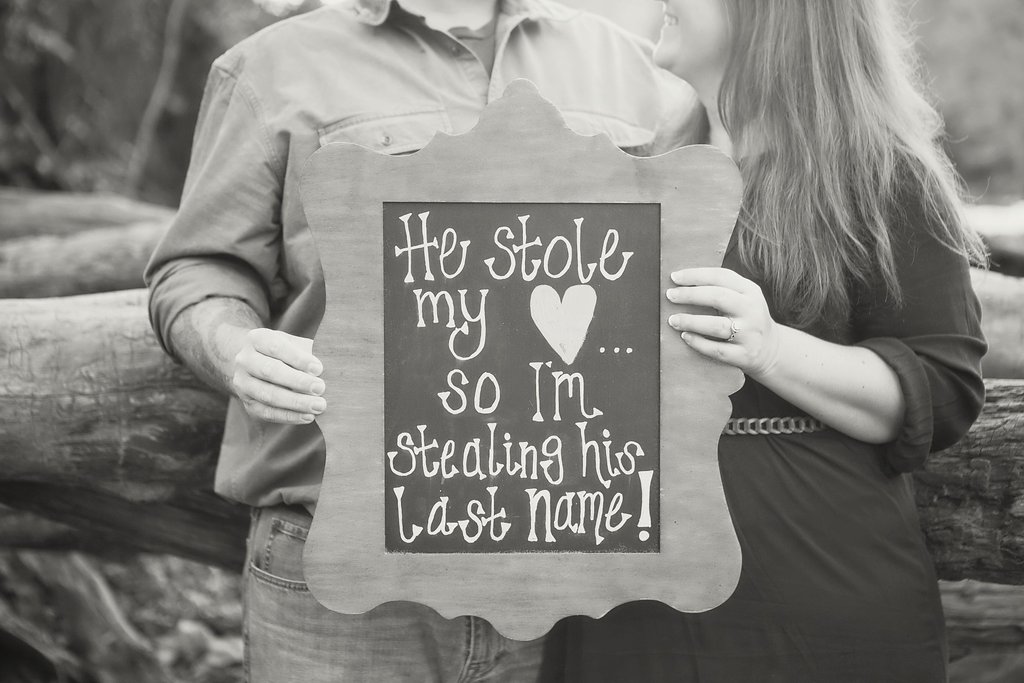 He stole
my ♥...
so I'm
stealing his
last name!